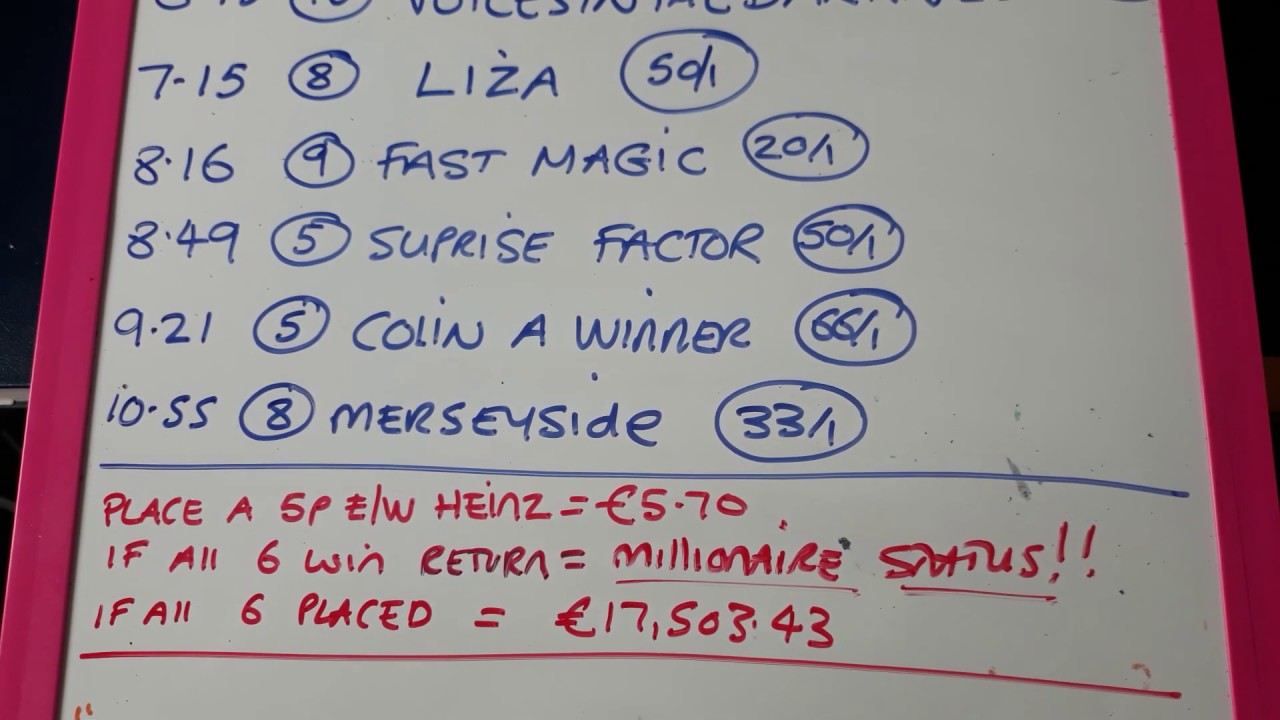 7-15 8 LIZA 50/1
8.16 9 FAST MAGIC 20/1
8.49 5 SUPRISE FACTOR 50/1
9.21 5 COLIN A WINNER 66/1
10.55 8 MERSEYSIDE 33/1
PLACE A 5P E/W HEINZ = €5.70.
IF All 6 WIN RETURN = MILLIONAIRE STATUS!!
IF All 6 PLACED = €17,503.43